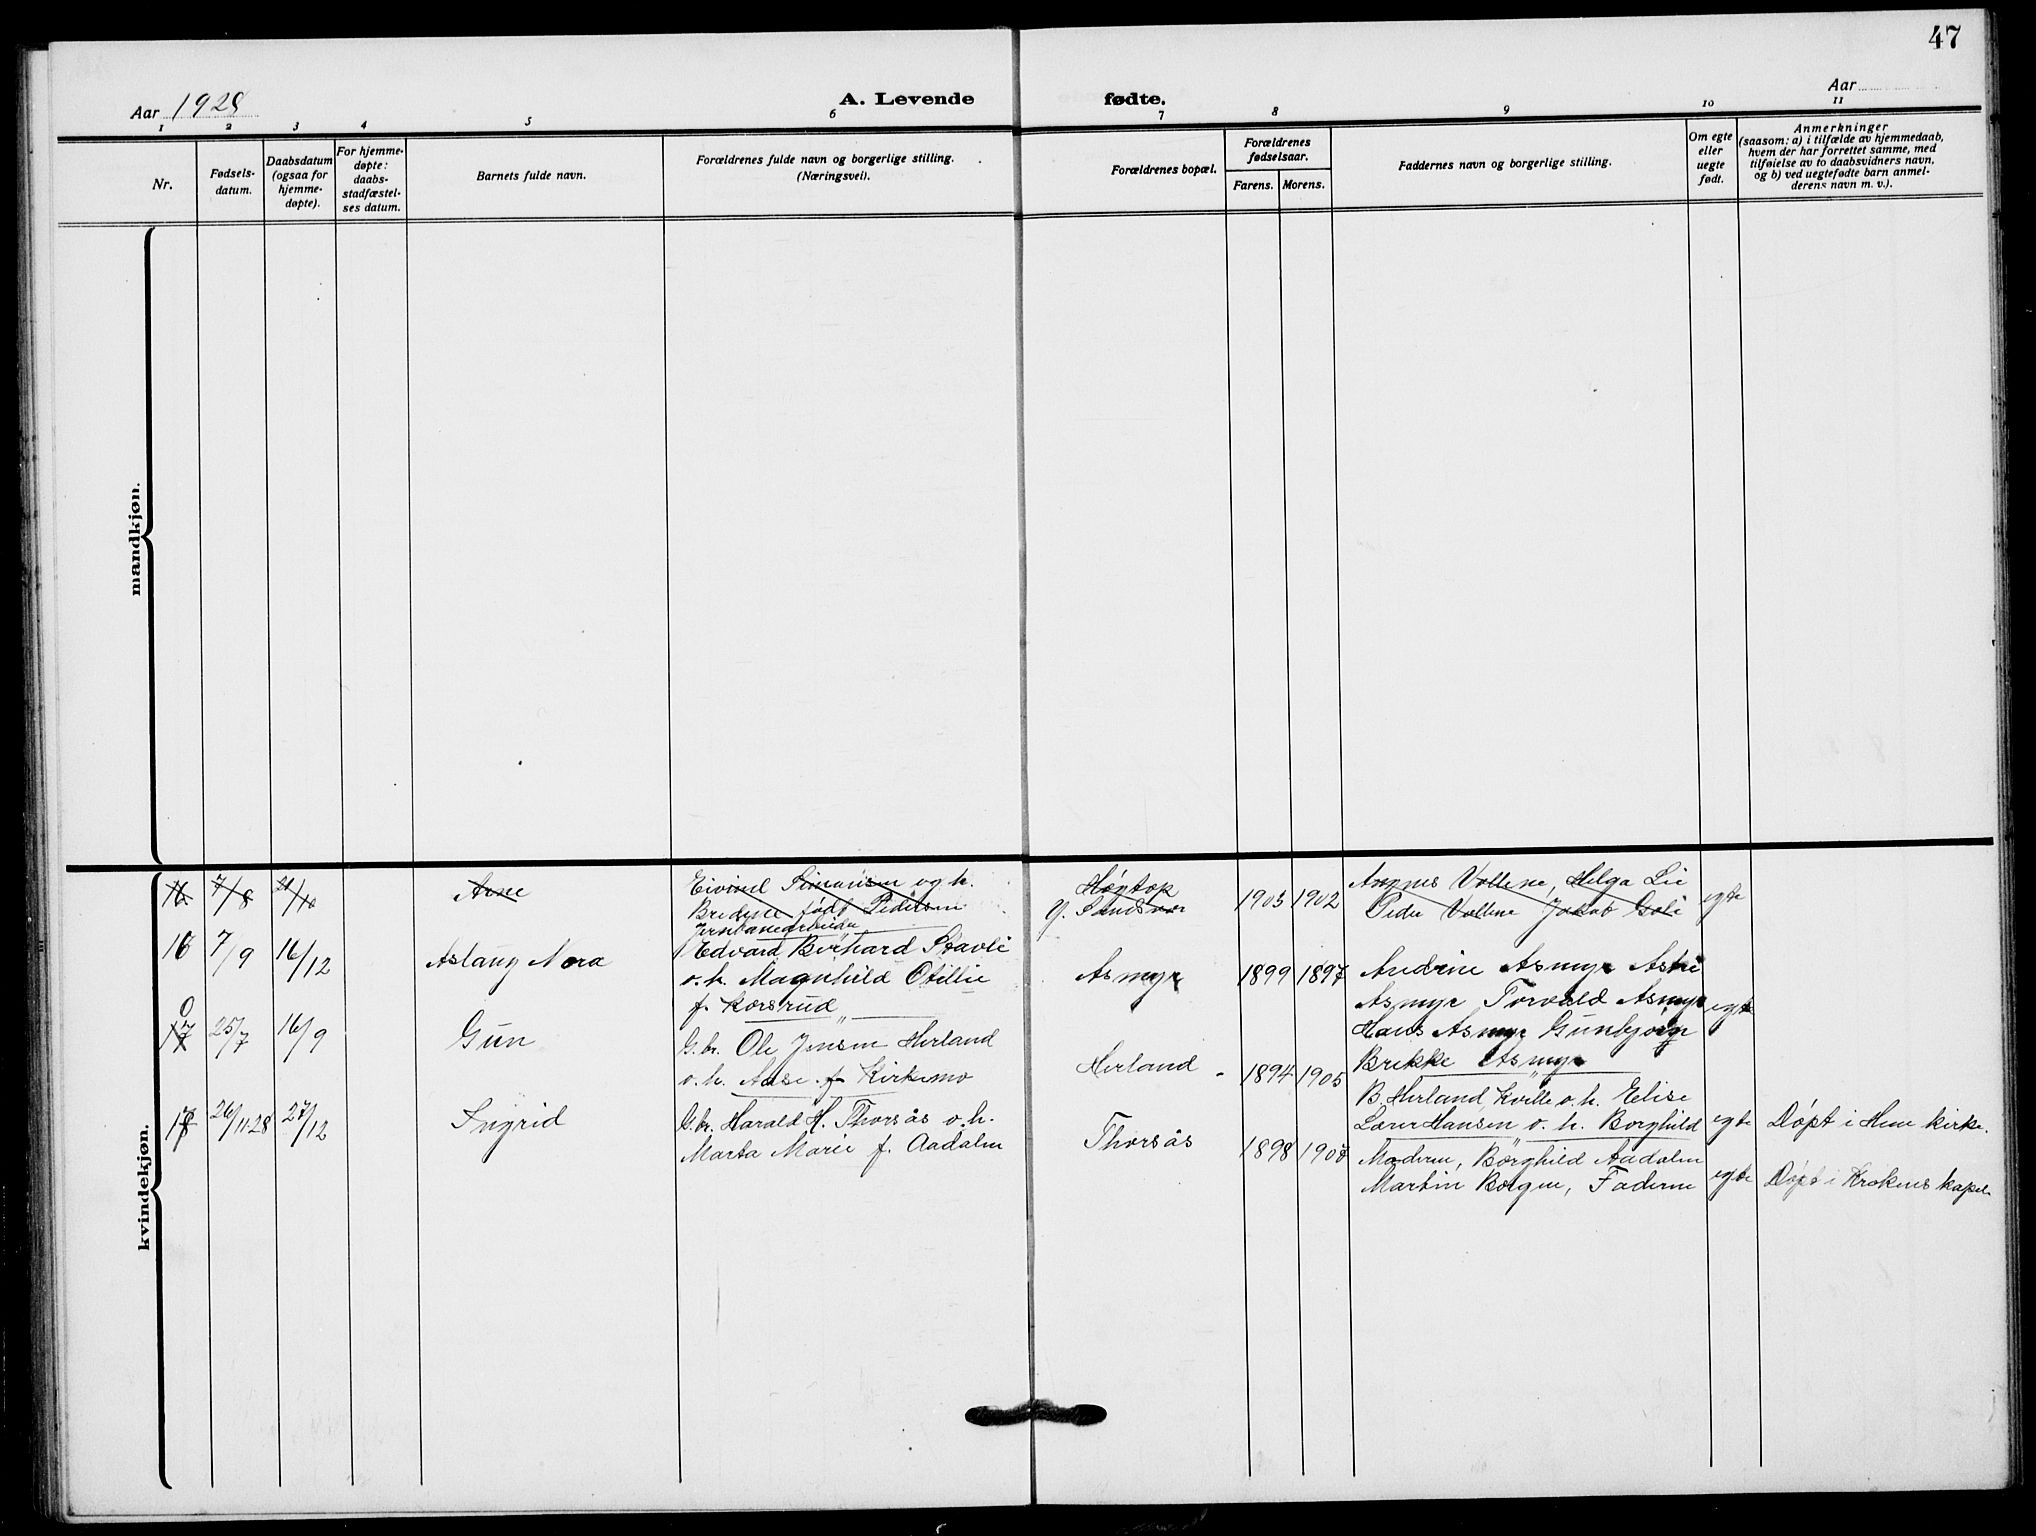 47
Aar 1928
A. Levende fødte.
Aar
1 2 3 4 5 6 7 8 9 10 11
Nr.
Fødsels-
datum.
Daabsdatum
(ogsaa for
hjemme-
døpte).
For hjemme-
døpte:
daabs-
stadfæstel-
ses datum.
Barnets fulde navn.
Forældrenes fulde navn og borgerlige stilling.
(Næringsvei).
Forældrenes bopæl.
Forældrenes
fødselsaar.
Farens. Morens.
Faddernes navn og borgerlige stilling.
Om egte
eller
uegte
født.
Anmerkninger
(saasom: a) i tilfælde av hjemmedaab,
hvem der har forrettet samme, med
tilføielse av to daabsvidners navn,
og b) ved uegtefødte barn anmel-
derens navn m. v.).
mandkjøn.
kvindekjøn.
16 7/8 21/10 Arne
Eivind Simensen og h.
født Pedersen
Jernbanearbeider
Høgtop
Y. Sandsvær
1903 1902
Agnes Vollene, Helga Lie
Peder Vollene Jakob Goli
egte
16 7/9 16/12 Aslaug Nora
Edvard Bernhard Stavli
o. h. Magnhild Otillie
f. Korsrud
Asmyr
1899 1897
Andrine Asmyr Astri
Asmyr Torvald Asmyr
Hans Asmyr Gunbjørn
Brekke Asmyr
egte
17 25/7 16/9 Gun
G.br. Ole Jensen Herland
o. h. Aase f. Kirkemo
Herland
1894 1905
B. Herland, Kville o. h. Elise
Hansen o. h. Borghild
egte
Døpt i Hem kirke.
26/11.28 27/12 Ingrid
G.br. Harald H. Thorsås o. h.
Marta Marie f. Aadalen
Thorsås
1898
Moderen, Borghild Aadalen
Martin Borgen, Faderen
egte
Døpt i Krokens kapel.